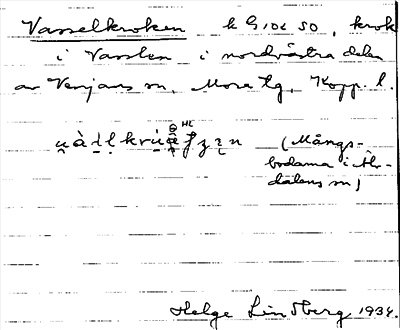 Vasselkroken k G 10c SO, krok
i Vasslen i nordvästra delen
av Venjans sn, Mora tg, Kopp. l.
(Mångs-
bodarna i Äl-
dalens sn)
Helge Lindberg 1934.